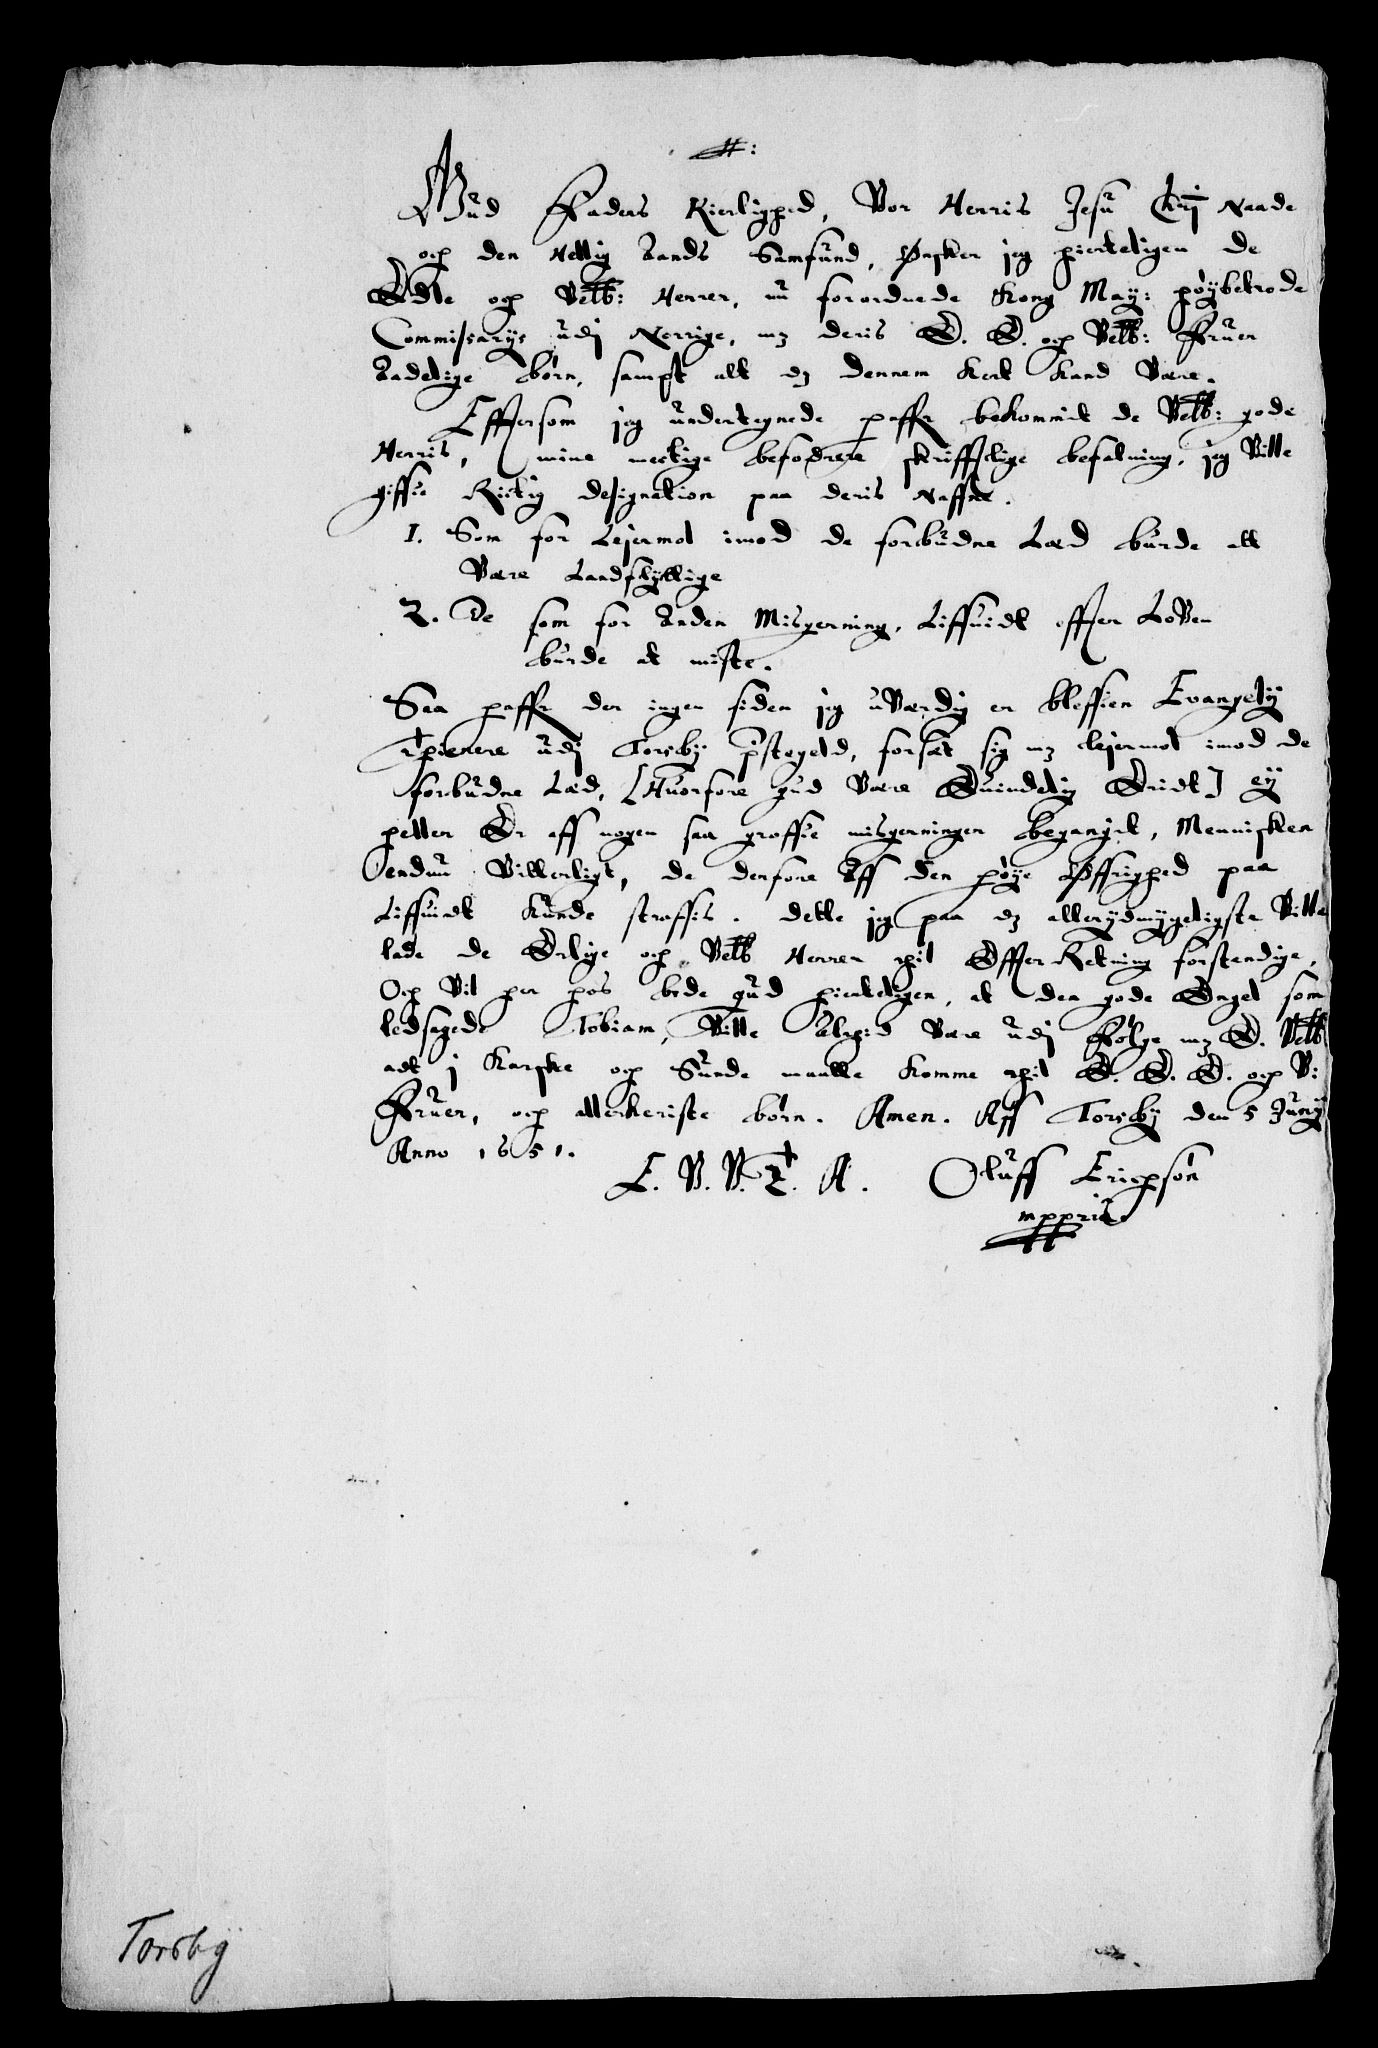 Gud Faders Kierlighed, Vor Herris Jesu Chrj Naade
och den Hellig Aands Samfund, Ønsker jeg hierteligen de
Edle och Velb: Herrer, nu forordnede Kong May: høybetrode
Commissarÿs udj Norrige, mz deris E. E. och Velb: Fruer
Aadelige børn, sampt alt dz dennem kert kand være.
Effersom jeg undertegnede haffr bekommit de Velb: gode
Herris, mine mectige befodrere skrifftlige befalning, jeg Ville
giffue Rictig designation paa deris Naffne.
1. Som for Lejermol imod de forbudne Læd burde att
Være Landflyttige
2. De som for Anden Misgerning, Liffuidt effter LoVen
burde at miste.
Saa haffr der ingen siden jeg uVærdig er bleffuen Evangelÿ
thienere udj Torsbÿ pstegeld, forset sig mz lejermol imod de
forbudne Læd, [Huorfore gud Være Euindelig Eridt] eÿ
heller Er aff nogen saa groffue misgerningen begangit, Mennisken
endnu Vitterligt, de derfore Aff den høye Øffrighed paa
Liffuidt kunde straffis. Dette jeg paa dz allerydmygeligste Ville
lade de Erlige och Velb Herrer thil EffterRetning forstendige,
Och Vil her hos bede gud hierteligen, at den gode Engel som
ledsagede Tobiam, Ville Altid Være udj Følge mz E. Velb
att j karske och Sunde maatte komme thil E. E. E. och V:
Fruer, och allerkeriste børn. Amen. Aff Torsbÿ den 5 Junÿ
Anno 1651.
E. V. V. T. A. Oluff Erichsøn
mppria
Torsbÿ